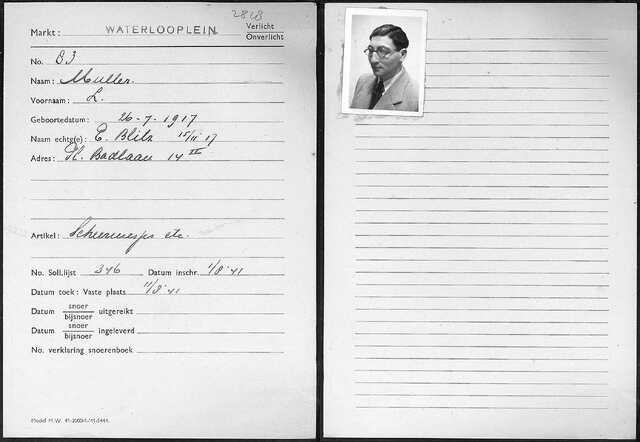 2818
Markt: WATERLOOPLEIN. Verlicht
Onverlicht
No. 83
Naam: Muller.
Voornaam: L.
Geboortedatum: 26-7-1917
Naam echtg(e): E. Blitz 15/11 17
Adres: Pl. Badlaan 14 II
Artikel: Scheermesjes etc.
No. Soll.lijst 346 Datum inschr. 1/8 '41
Datum toek: Vaste plaats 11/8 '41
Datum snoer
bijsnoer uitgereikt
Datum snoer
bijsnoer ingeleverd
No. verklaring snoerenboek
Model M.W.